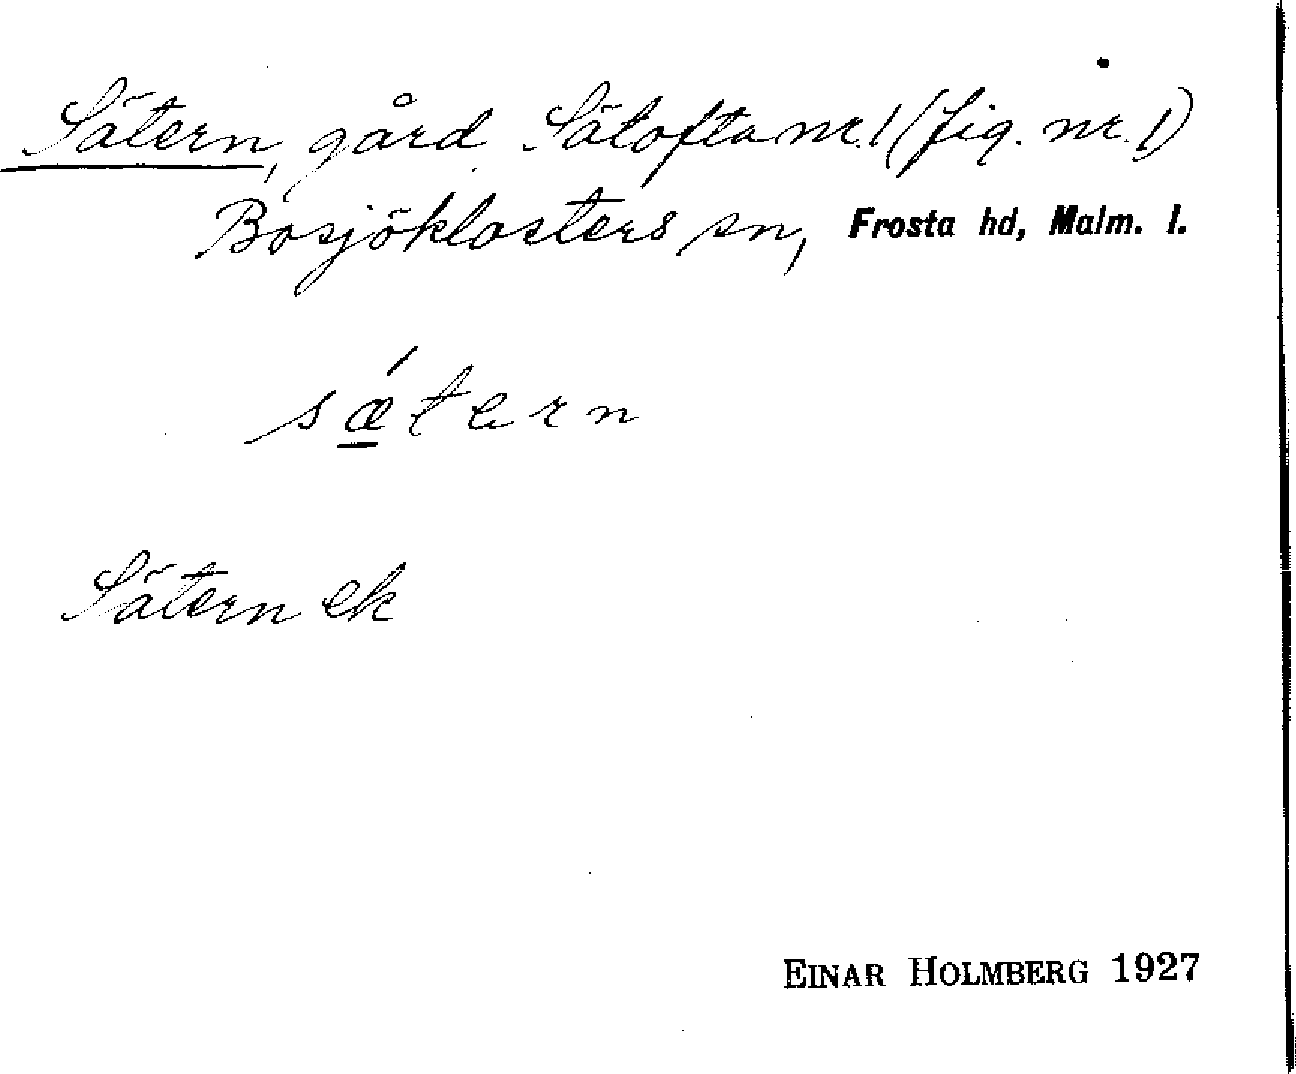 Sätern, gård Sätofta nr. 1 (fig. nr. 1)
Bosjöklosters sn, Frosta hd, Malm. l.
sǽ̲tern
Sätern ek
EINAR HOLMBERG 1927